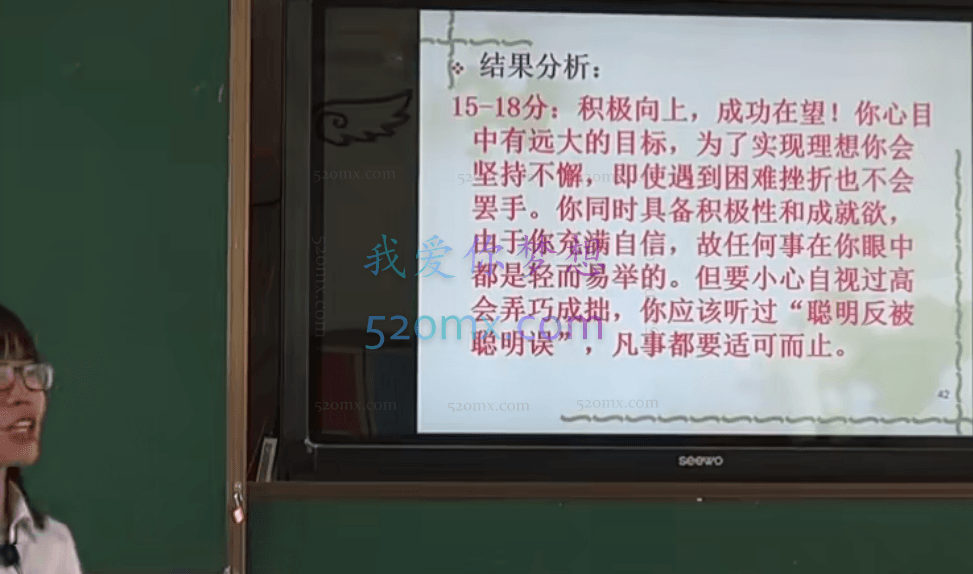 结果分析：
15-18分：积极向上，成功在望！你心目
中有远大的目标，为了实现理想你会
坚持不懈，即使遇到困难挫折也不会
罢手。你同时具备积极性和成就欲，
由于你充满自信，故任何事在你眼中
都是轻而易举的。但要小心自视过高
会弄巧成拙，你应该听过“聪明反被
聪明误”，凡事都要适可而止。
42
seewo
我爱你梦想
520mx.com
520mx.com
520mx.com
520mx.com
520mx.com
520mx.com